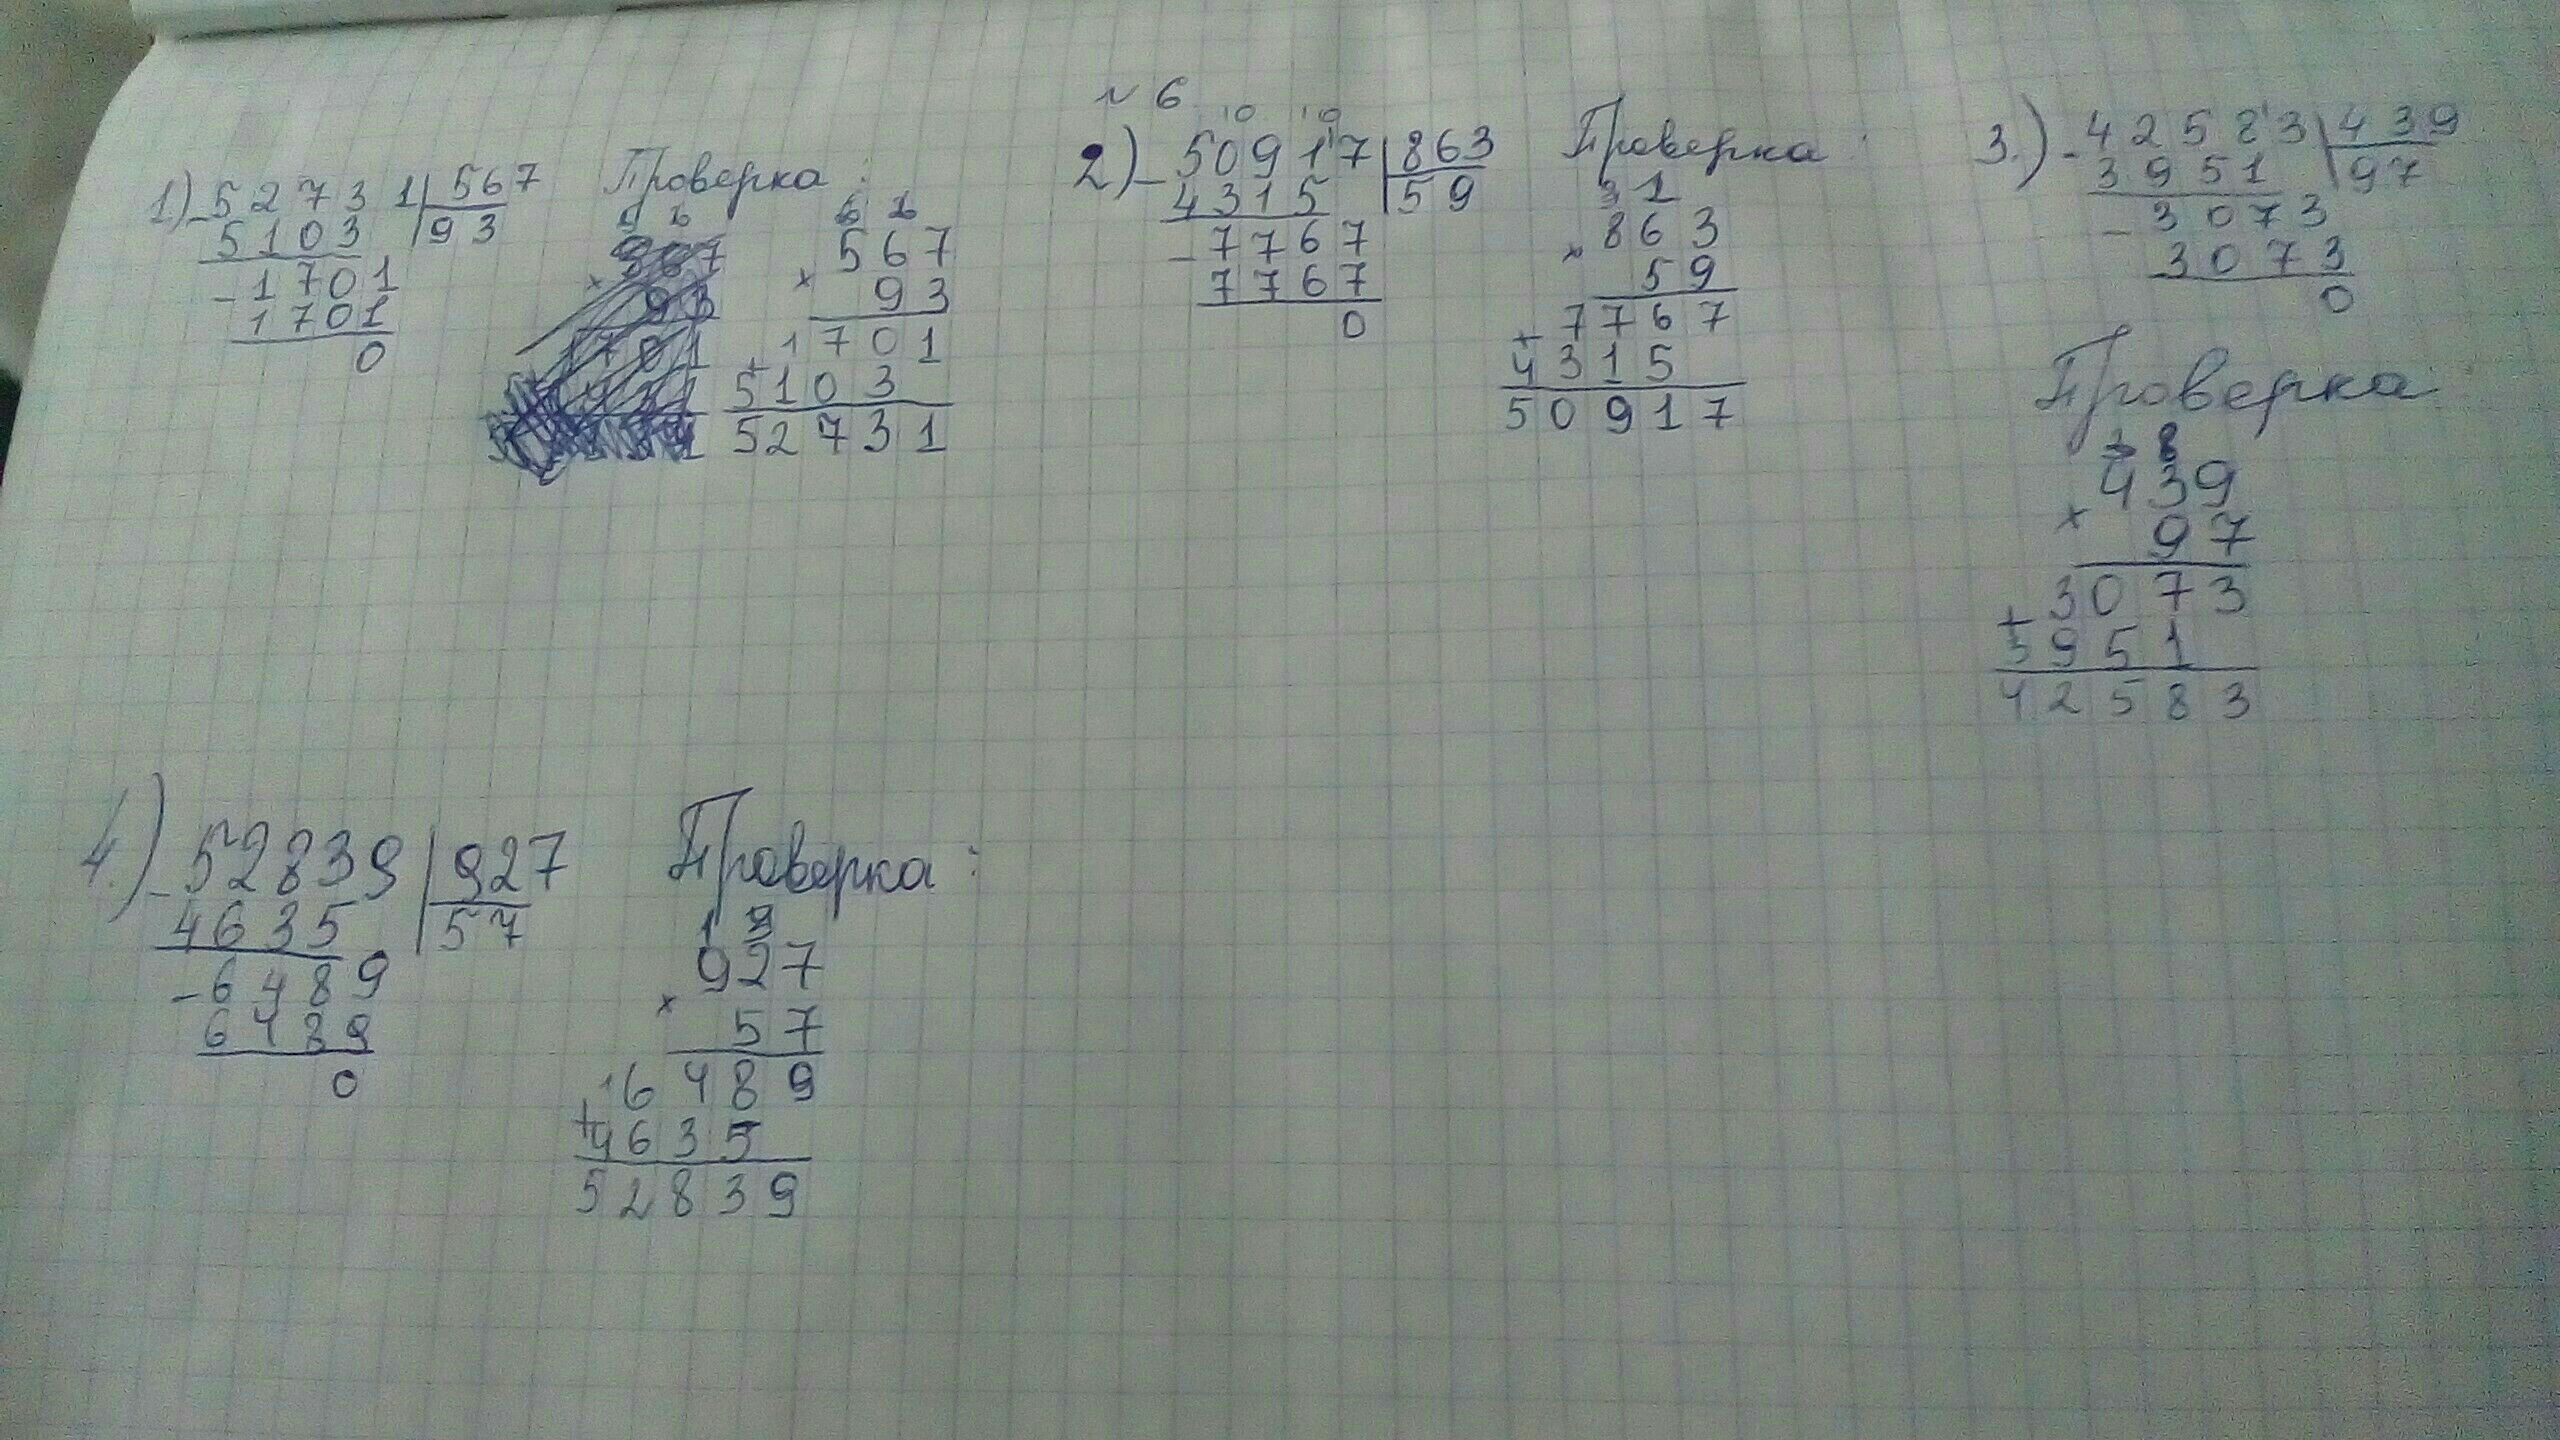 № 6
1) - 52731 | 567
5103 | 93
- 1701
1701
0
Проверка:
6 2
567
× 93
1701
+ 5103
52731
10 10
2) - 50917 | 863
4315 | 59
- 7767
7767
0
Проверка:
3 1
863
× 59
7767
+ 4315
50917
3.) - 42583 | 439
3951 | 97
- 3073
3073
0
Проверка
439
× 97
3073
+ 3951
42583
4.) - 52839 | 927
4635 | 57
- 6489
6489
0
Проверка:
927
× 57
6489
+ 4635
52839